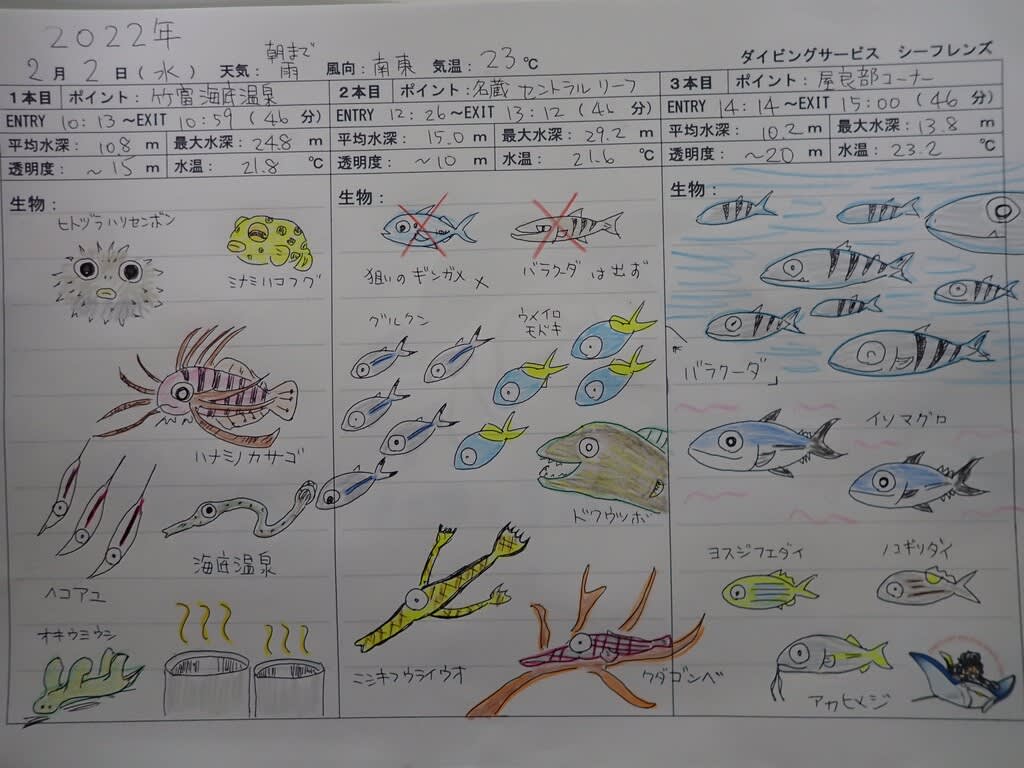 2022年
2月2日(水) 天気:朝まで雨 風向:南東 気温:23℃ ダイビングサービス シーフレンズ
1本目 ポイント:竹富海底温泉
ENTRY 10:13~EXIT 10:59(46分)
平均水深:10.8m 最大水深:24.8m
透明度:~15m 水温:21.8℃
生物:
ヒトヅラハリセンボン
ミナミハコフグ
ハナミノカサゴ
海底温泉
ヘコアユ
オキウミウシ
2本目 ポイント:名蔵セントラルリーフ
ENTRY 12:26~EXIT 13:12(46分)
平均水深:15.0m 最大水深:29.2m
透明度:~10m 水温:21.6℃
生物:
狙いのギンガメ×
バラクーダは出ず
グルクン
ウメイロ
モドキ
ドクウツボ
ニシキフウライウオ
クダゴンベ
3本目 ポイント:屋良部コーナー
ENTRY 14:14~EXIT 15:00(46分)
平均水深:10.2m 最大水深:13.8m
透明度:~20m 水温:23.2℃
生物:
バラクーダ」
イソマグロ
ヨスジフエダイ
ノコギリダイ
アカヒメジ